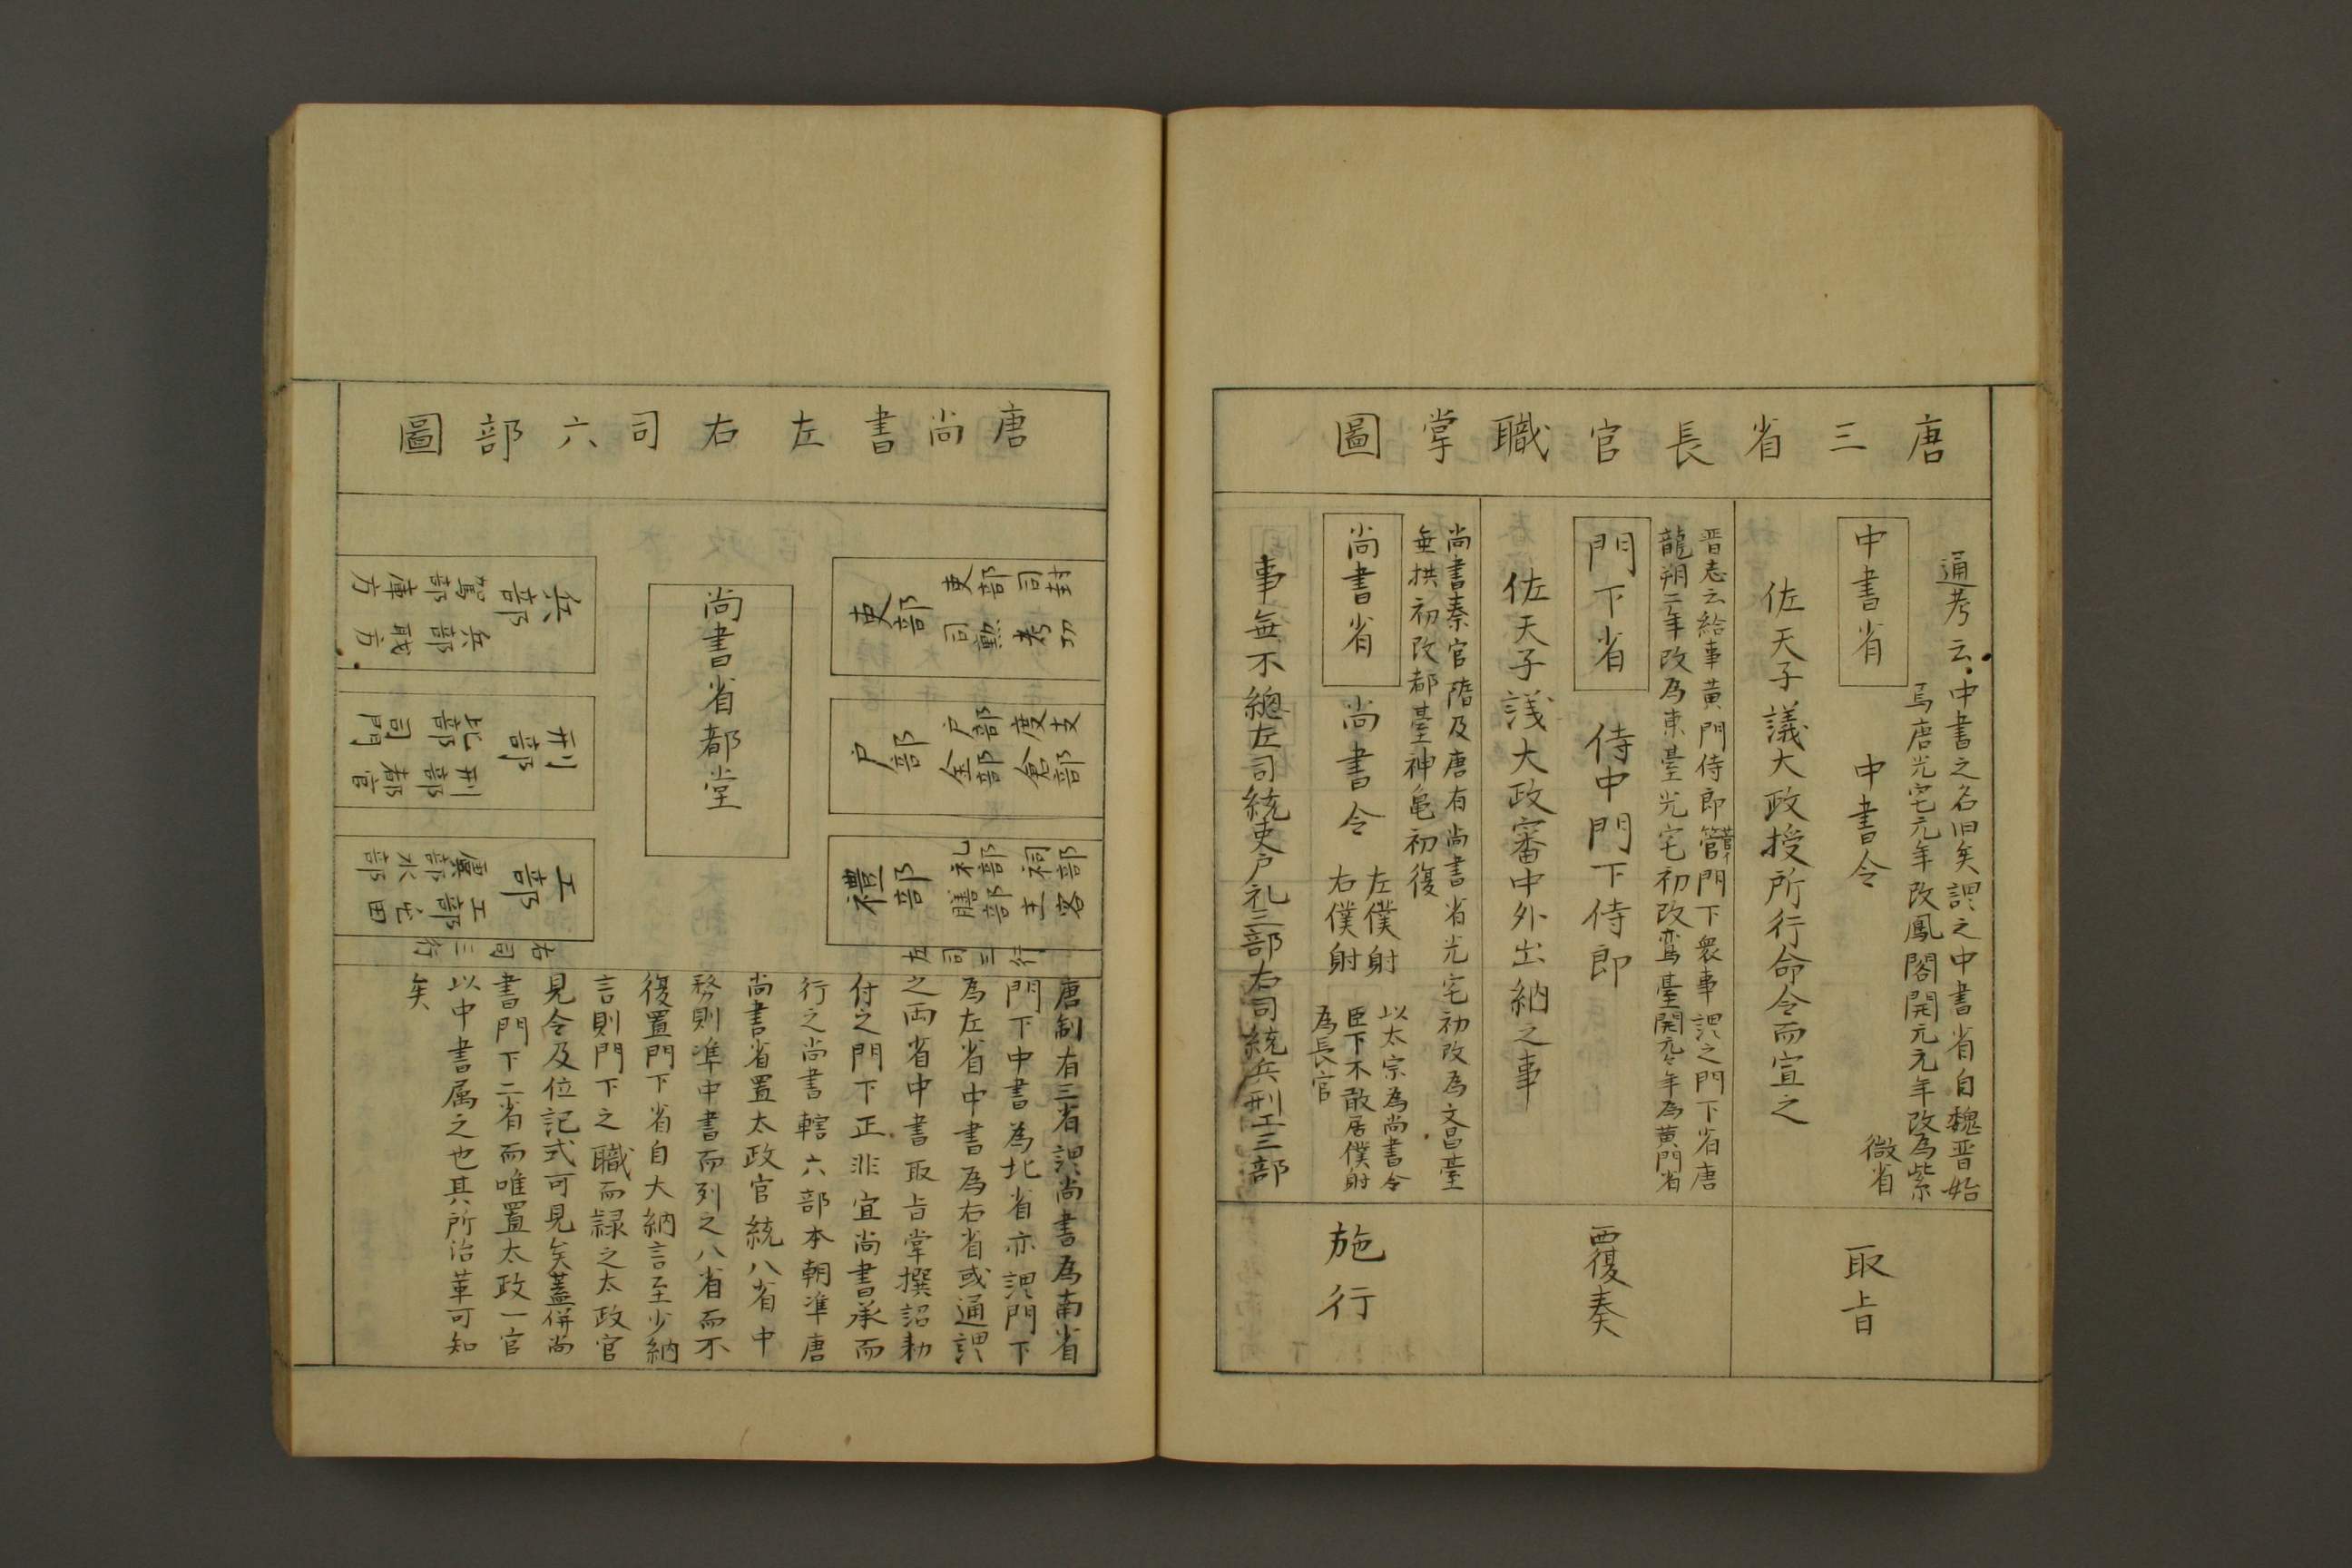 唐三省長官職掌圖
通考云
中書之名旧矣謂之中書省自魏晋始
焉唐光宅元年改鳳閣開元元年改為紫
微省
中書省
中書令
佐天子議大政授所行命令而宣之
取旨
晋志云給事黄門侍郎管門下衆事謂之門下省唐
龍朔二年改為東臺光宅初改鸞臺開元々年為黄門省
門下省
侍中門下侍郎
佐天子議大政審中外出納之事
覆奏
尚書秦官隋及唐有尚書省光宅初改為文昌臺
垂拱初改都臺神亀初復
尚書省
尚書令
左僕射
右僕射
以太宗為尚書令
臣下不敢居僕射
為長官
事無不總左司統吏戸礼三部右司統兵刑工三部
施行
唐尚書左右司六部圖
吏部
吏部
司封
司勲
考功
戸部
戸部
度支
金部
倉部
禮部
礼部
祠部
膳部
主客
左司三行
尚書省都堂
兵部
兵部
職方
駕部
庫方
刑部
刑部
都官
比部
司門
工部
工部
屯田
虞部
水部
右司三行
唐制有三省謂尚書為南省
門下中書為北省亦謂門下
為左省中書為右省或通謂
之両省中書取旨掌撰詔勅
付之門下正非宜尚書承而
行之尚書轄六部本朝準唐
尚書省置太政官統八省中
務則準中書而列之八省而不
復置門下省自大納言至少納
言則門下之職而録之太政官
見令及位記式可見矣蓋併尚
書門下二省而唯置太政一官
以中書属之也其所沿革可知
矣